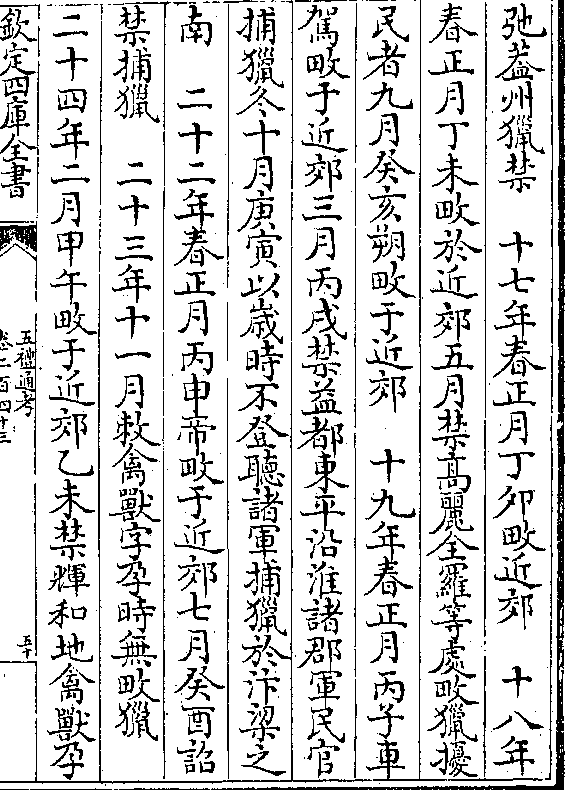 弛蓋州獵禁　十七年春正月丁卯畋近郊　十八年
春正月丁未畋於近郊五月禁髙麗全羅等處畋獵擾
民者九月癸亥朔畋于近郊　十九年春正月丙子車
駕畋于近郊三月丙戌禁益都東平沿淮諸郡軍民官
捕獵冬十月庚寅以歳時不登聽諸軍捕獵於汴梁之
南　二十二年春正月丙申帝畋于近郊七月癸酉詔
禁捕獵　二十三年十一月敕禽獸字孕時無畋獵
二十四年二月甲午畋于近郊乙未禁輝和地禽獸孕
欽定四庫全書
五禮通考
卷二百四十三
五十